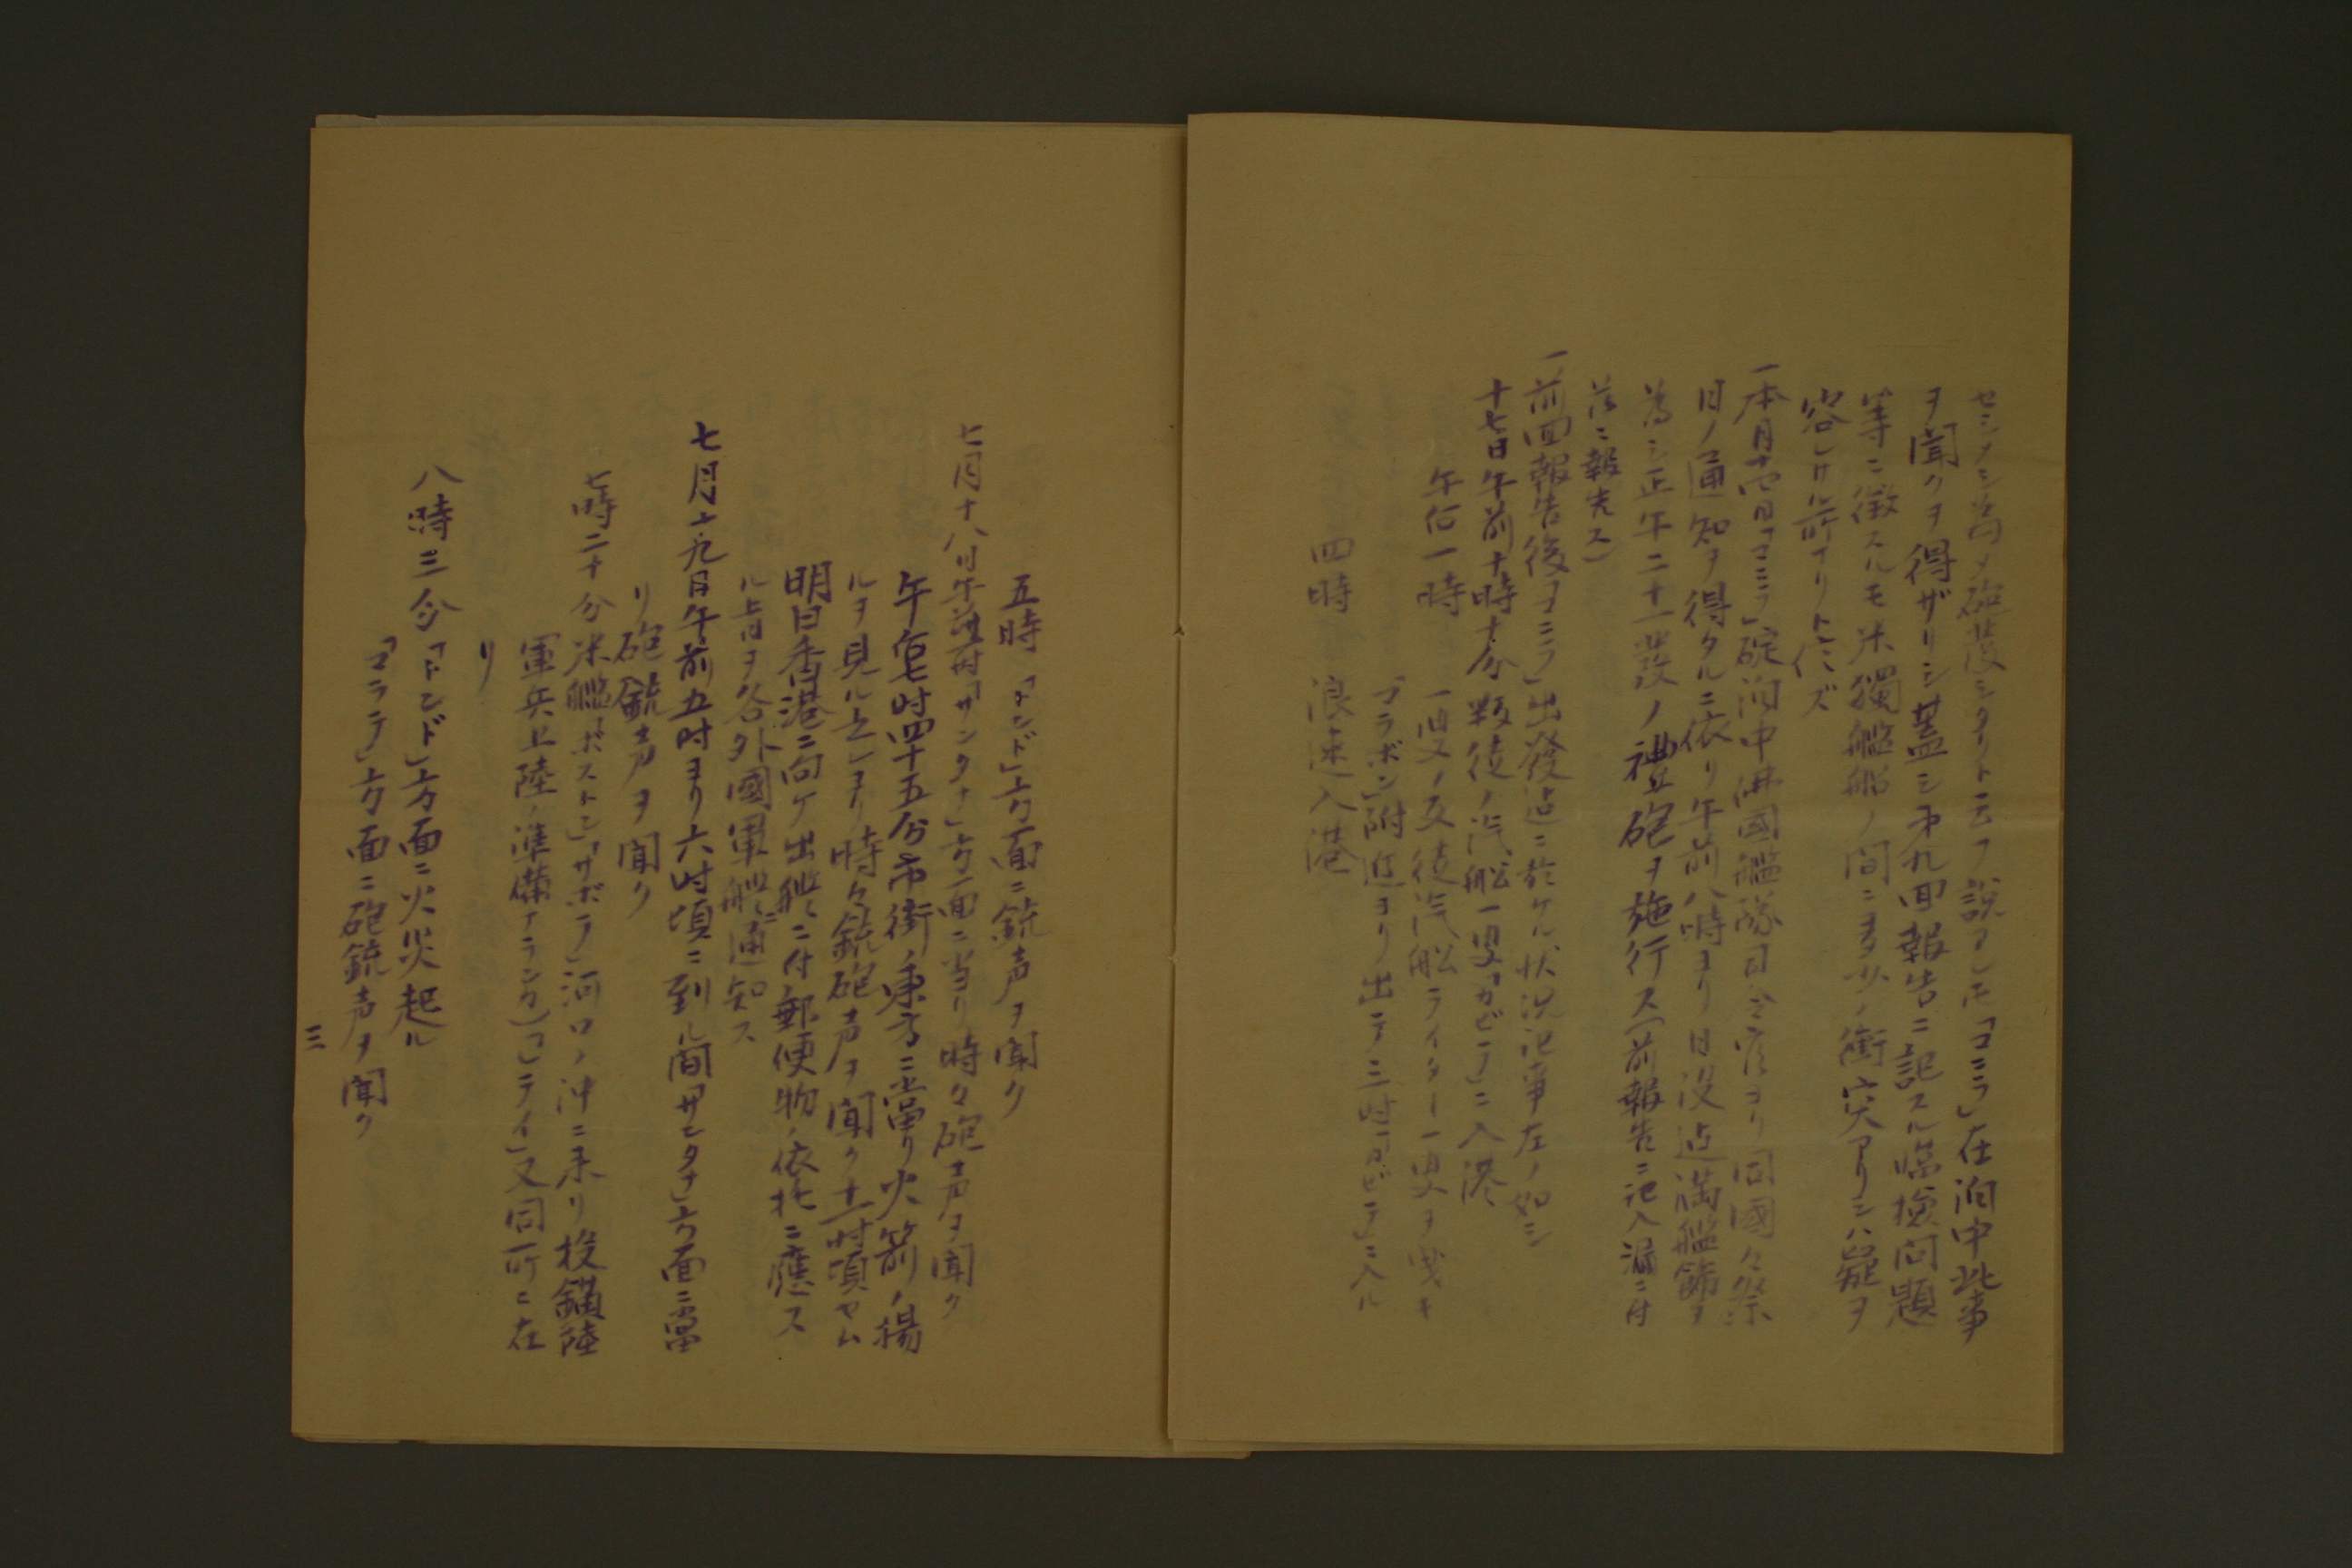 セシメシ為メ砲發シタリト云フ説アレ𪜈「マニラ」在泊中此事
ヲ聞クヲ得ザリシ蓋シ第九回報告ニ記スル臨撿問題
等ニ徴スルモ米獨艦船ノ間ニ多少ノ衝突アリシハ疑ヲ
容レサル所ナリト信ズ
一本月十四日「マニラ」碇泊中佛國艦隊司令官ヨリ同國々祭
日ノ通知ヲ得タルニ依リ午前八時ヨリ日没迠満艦飾ヲ
為シ正午二十一發ノ禮砲ヲ施行ス(前報告ニ記入漏ニ付
茲ニ報告ス)
一前回報告後マニラ」出發迠ニ於ケル状况記事左ノ如シ
十七日午前十時十分叛徒ノ汽船一隻「カビテ」ニ入港
午后一時 一隻ノ叛徒汽船ライター一隻ヲ曳キ
「ブラボン」附近ヨリ出テ三时「カビテ」ニ入ル
四時 浪速入港
五時「トンド」方面ニ銃声ヲ聞ク
七月十八日午前 「サンタナ」方面ニ当リ時々砲声ヲ聞ク
午后七时四十五分市街ノ東方ニ當リ火箭ノ揚
ルヲ見ル之レヨリ時々銃砲声ヲ聞ク十一时頃ヤム
明日香港ニ向ケ出艦ニ付郵便物ノ依托ニ應ス
ル旨ヲ各外國軍艦ニ通知ス
七月十九日午前五时ヨリ六时頃ニ到ル間「サンタナ」方面ニ當
リ砲銃声ヲ聞ク
七時二十分米艦「ボストン」「サボテ」河口ノ沖ニ来リ投錨陸
軍兵上陸ノ準備アランカ)「レーテイ」又同所ニ在
リ
八時三分「トンド」方面ニ火災起ル
「マラテ」方面ニ砲銃声ヲ聞ク
三